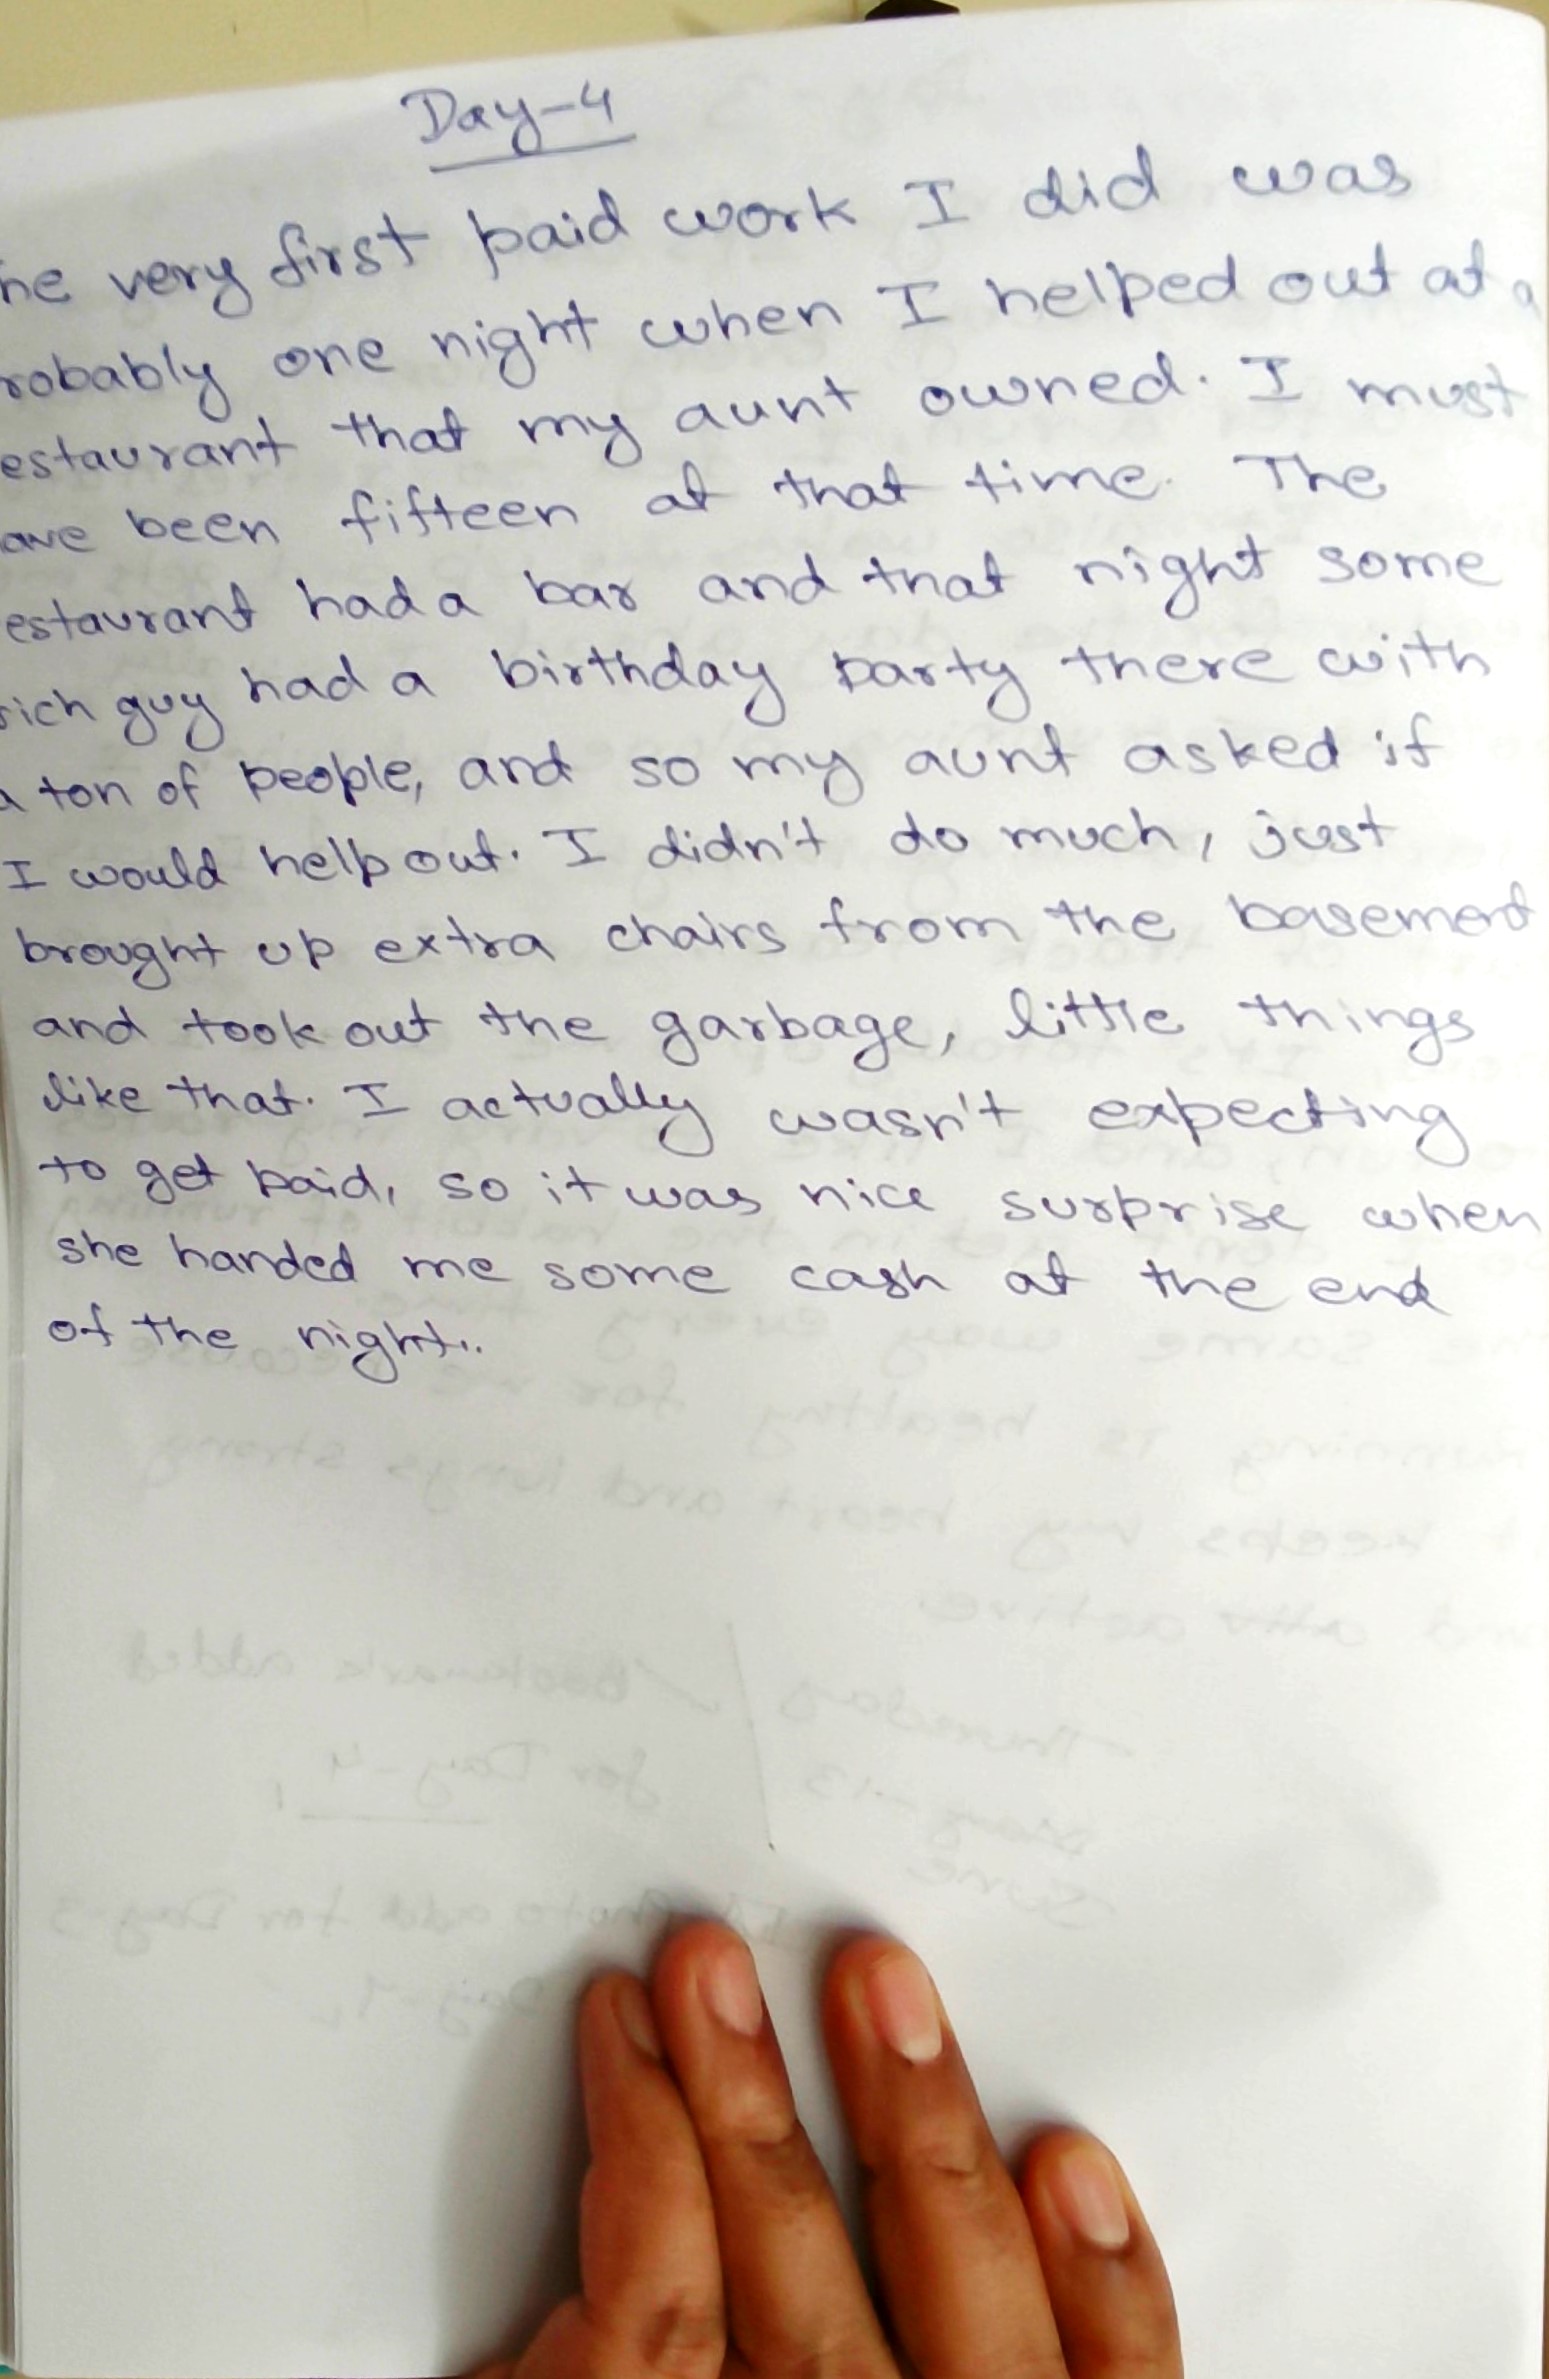 Day-4
he very first paid work I did was
robably one night when I helped out at a
estaurant that my aunt owned. I must
ave been fifteen at that time. The
estaurant had a bar and that night some
rich guy had a birthday party there with
a ton of people, and so my aunt asked if
I would help out. I didn't do much, just
brought up extra chairs from the basement
and took out the garbage, little things
like that. I actually wasn't expecting
to get paid, so it was nice surprise when
she handed me some cash at the end
of the night..